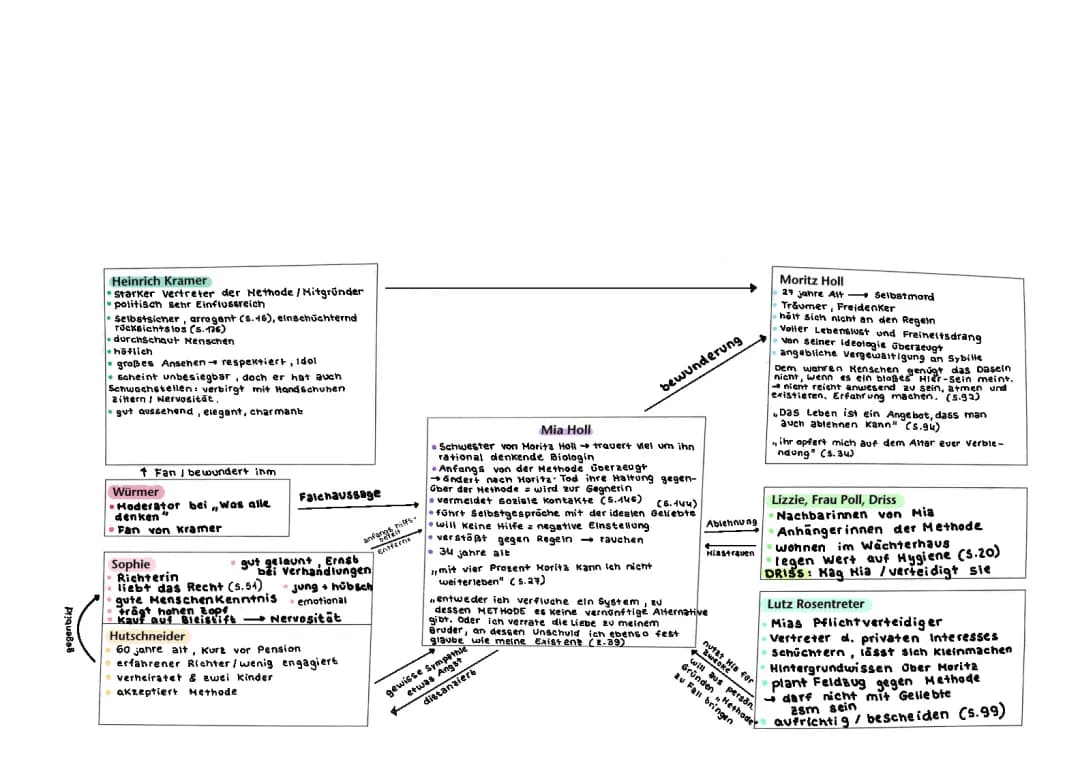 Heinrich Kramer
• starker Vertreter der Methode / Mitgründer
• politisch sehr Einflussreich
• Selbstsicher, arrogant (S.16), einschüchternd
rücksichtslos (S.176)
• durchschaut Menschen
• höflich
• großes Ansehen → respektiert, Idol
• scheint unbesiegbar, doch er hat auch
Schwachstellen: verbirgt mit Handschuhen
zittern / Nervosität.
• gut aussehend, elegant, charmant
↑ Fan / bewundert ihn
Würmer
• Moderator bei „Was alle
denken"
• Fan von Kramer
Falchaussage
Sophie
• Richterin
• liebt das Recht (S.54)
• gute Menschenkenntnis
• trägt hohen Zopf
• kaut auf Bleistift → Nervosität
• gut gelaunt, Ernst
bei Verhandlungen
• jung + hübsch
• emotional
Gegenbild
Hutschneider
• 60 jahre alt, Kurz vor Pension
• erfahrener Richter / wenig engagiert
• verheiratet & zwei Kinder
• akzeptiert Methode
anfangs hilfs-
bereit
Entfernt
gewisse Sympathie
etwas Angst
distanziert
Mia Holl
• Schwester von Moritz Holl → trauert viel um ihn
rational denkende Biologin
• Anfangs von der Methode überzeugt
→ ändert nach Moritz' Tod ihre Haltung gegen-
über der Methode = wird zur Gegnerin
• vermeidet soziale Kontakte (S.145)
(S.144)
• führt Selbstgespräche mit der idealen Geliebte
• will keine Hilfe = negative Einstellung
• verstößt gegen Regeln → rauchen
• 34 jahre alt
„mit vier Prozent Moritz kann ich nicht
weiterleben" (S.27)
„entweder ich verfluche ein System, zu
dessen METHODE es keine vernünftige Alternative
gibt. Oder ich verrate die Liebe zu meinem
Bruder, an dessen Unschuld ich ebenso fest
glaube wie meine Existenz (S.39)
bewunderung
Moritz Holl
• 27 jahre Alt → Selbstmord
• Träumer, Freidenker
• hält sich nicht an den Regeln
• Voller Lebenslust und Freiheitsdrang
• von seiner Ideologie überzeugt
• angebliche Vergewaltigung an Sybille
Dem wahren Menschen genügt das Dasein
nicht, wenn es ein bloßes Hier-Sein meint.
→ nicht reicht anwesend zu sein, atmen und
existieren. Erfahrung machen. (S.92)
„Das Leben ist ein Angebot, dass man
auch ablehnen kann" (S.94)
„ihr opfert mich auf dem Altar euer Verble-
ndung" (S.34)
Ablehnung
Misstrauen
Lizzie, Frau Poll, Driss
• Nachbarinnen von Mia
• Anhängerinnen der Methode
• wohnen im Wächterhaus
• legen Wert auf Hygiene (S.20)
DRISS: Mag Mia / verteidigt sie
Lutz Rosentreter
• Mias Pflichtverteidiger
• Vertreter d. privaten Interesses
• Schüchtern, lässt sich kleinmachen
• Hintergrundwissen über Moritz
• plant Feldzug gegen Methode
→ darf nicht mit Geliebte
zsm sein
• aufrichtig / bescheiden (S.99)
nutzt Mia für
zwecke
will aus persön.
Gründen „Methode"
zu Fall bringen